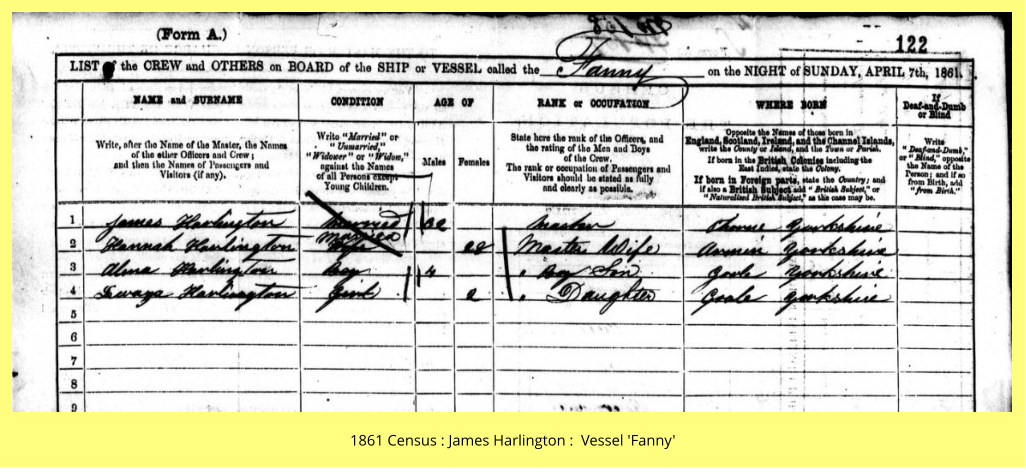 (Form A.)
122
LIST of the CREW and OTHERS on BOARD of the SHIP or VESSEL called the Fanny on the NIGHT of SUNDAY, APRIL 7th, 1861.
NAME and SURNAME CONDITION AGE OF RANK or OCCUPATION WHERE BORN If Deaf-and-Dumb or Blind
Write, after the Name of the Master, the Names
of the other Officers and Crew;
and then the Names of Passengers and
Visitors (if any).
Write "Married" or
"Unmarried,"
"Widower" or "Widow,"
against the Names
of all Persons except
Young Children.
Males Females
State here the rank of the Officers, and
the rating of the Men and Boys
of the Crew.
The rank or occupation of Passengers and
Visitors should be stated as fully
and clearly as possible.
Opposite the Names of those born in
England, Scotland, Ireland, and the Channel Islands,
write the County or Island, and the Town or Parish.
If born in the British Colonies including the
East Indies, state the Colony.
If born in Foreign parts, state the Country; and
if also a British Subject add "British Subject," or
"Naturalised British Subject," as the case may be.
Write
"Deaf-and-Dumb,"
or "Blind," opposite
the Name of the
Person; and if so
from Birth, add
"from Birth."
1 James Harlington Married Master Thorne Yorkshire
2 Hannah Harlington Married Master Wife Yorkshire
3 Harlington Boy 4 " Boy Son Goole Yorkshire
4 Harlington " Daughter Goole Yorkshire
5
6
7
8
9
1861 Census : James Harlington : Vessel 'Fanny'